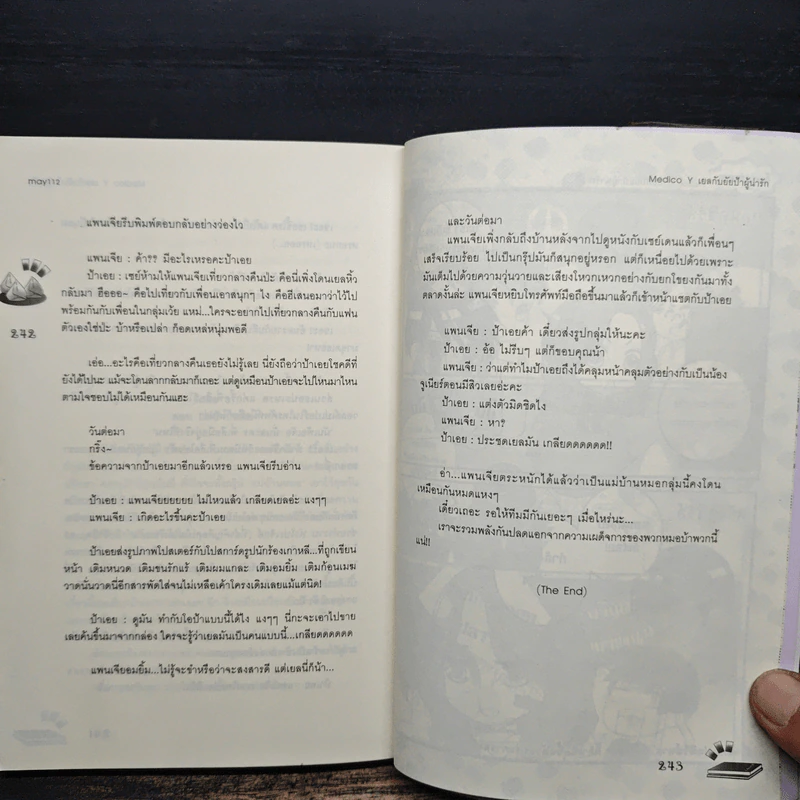 may112
แพนเจียรีบพิมพ์ตอบกลับอย่างว่องไว
แพนเจีย : ค้า?? มีอะไรเหรอคะป้าเอย
ป้าเอย : เซย์ห้ามให้แพนเจียเที่ยวกลางคืนป่ะ คือนี่เพิ่งโดนเยลหิ้ว
กลับมา ฮืออออ~ คือไปเที่ยวกับเพื่อนเอาสนุกๆ ไง คือฮีเสนอมาว่าไว้ไป
พร้อมกันกับเพื่อนในกลุ่มเว้ย แหม่...ใครจะอยากไปเที่ยวกลางคืนกับแฟน
ตัวเองใช่ป่ะ บ้าหรือเปล่า ก็อดเหล่หนุ่มพอดี
เอ่อ...อะไรคือเที่ยวกลางคืนเธอยังไม่รู้เลย นี่ยังถือว่าป้าเอยโชคดีที่
ยังได้ไปนะ แม้จะโดนลากกลับมาก็เถอะ แต่ดูเหมือนป้าเอยจะไปไหนมาไหน
ตามใจชอบไม่ได้เหมือนกันแฮะ
272
วันต่อมา
กริ๊ง~
ข้อความจากป้าเอยมาอีกแล้วเหรอ แพนเจียรีบอ่าน
ป้าเอย : แพนเจียยยยยย ไม่ไหวแล้ว เกลียดเยลอ่ะ แงๆๆ
แพนเจีย : เกิดอะไรขึ้นคะป้าเอย
ป้าเอยส่งรูปภาพโปสเตอร์กับโปสการ์ดรูปนักร้องเกาหลี...ที่ถูกเขียน
หน้า เติมหนวด เติมขนรักแร้ เติมผมแกละ เติมอมยิ้ม เติมก้อนเมฆ
วาดนั่นวาดนี่อีกสารพัดใส่จนไม่เหลือเค้าโครงเดิมเลยแม้แต่นิด!
ป้าเอย : ดูมัน ทำกับโอป้าแบบนี้ได้ไง แงๆๆ นี่กะจะเอาไปขาย
เลยค้นขึ้นมาจากกล่อง ใครจะรู้ว่าเยลมันเป็นคนแบบนี้...เกลียดดดดดด
แพนเจียอมยิ้ม...ไม่รู้จะขำหรือว่าจะสงสารดี แต่เยลนี่ก็น้า...
Medico Y เยลกับยัยป้าผู้น่ารัก
และวันต่อมา
แพนเจียเพิ่งกลับถึงบ้านหลังจากไปดูหนังกับเซย์เดนแล้วก็เพื่อนๆ
เสร็จเรียบร้อย ไปเป็นกรุ๊ปมันก็สนุกอยู่หรอก แต่ก็เหนื่อยไปด้วยเพราะ
มันเต็มไปด้วยความวุ่นวายและเสียงโหวกเหวกอย่างกับยกโขยงกันมาทั้ง
ตลาดงั้นล่ะ แพนเจียหยิบโทรศัพท์มือถือขึ้นมาแล้วก็เข้าหน้าแชตกับป้าเอย
แพนเจีย : ป้าเอยค้า เดี๋ยวส่งรูปกลุ่มให้นะคะ
ป้าเอย : อ้อ ไม่รีบๆ แต่ก็ขอบคุณน้า
แพนเจีย : ว่าแต่ทำไมป้าเอยถึงได้คลุมหน้าคลุมตัวอย่างกับเป็นน้อง
จูเนียร์ตอนมีสิวเลยอ่ะคะ
ป้าเอย : แต่งตัวมิดชิดไง
แพนเจีย : หา?
ป้าเอย : ประชดเยลมัน เกลียดดดดดด!!
อ่า...แพนเจียตระหนักได้แล้วว่าเป็นแม่บ้านหมอกลุ่มนี้คงโดน
เหมือนกันหมดแหงๆ
เดี๋ยวเถอะ รอให้ทีมมีกันเยอะๆ เมื่อไหร่นะ...
เราจะรวมพลังกันปลดแอกจากความเผด็จการของพวกหมอบ้าพวกนี้
แน่!!
(The End)
273